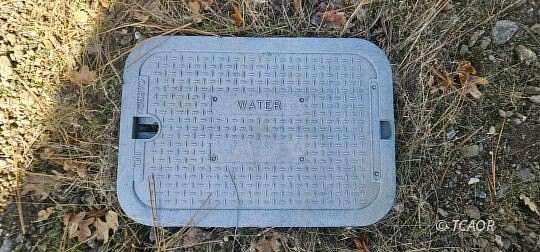 WATER
© TCAOR